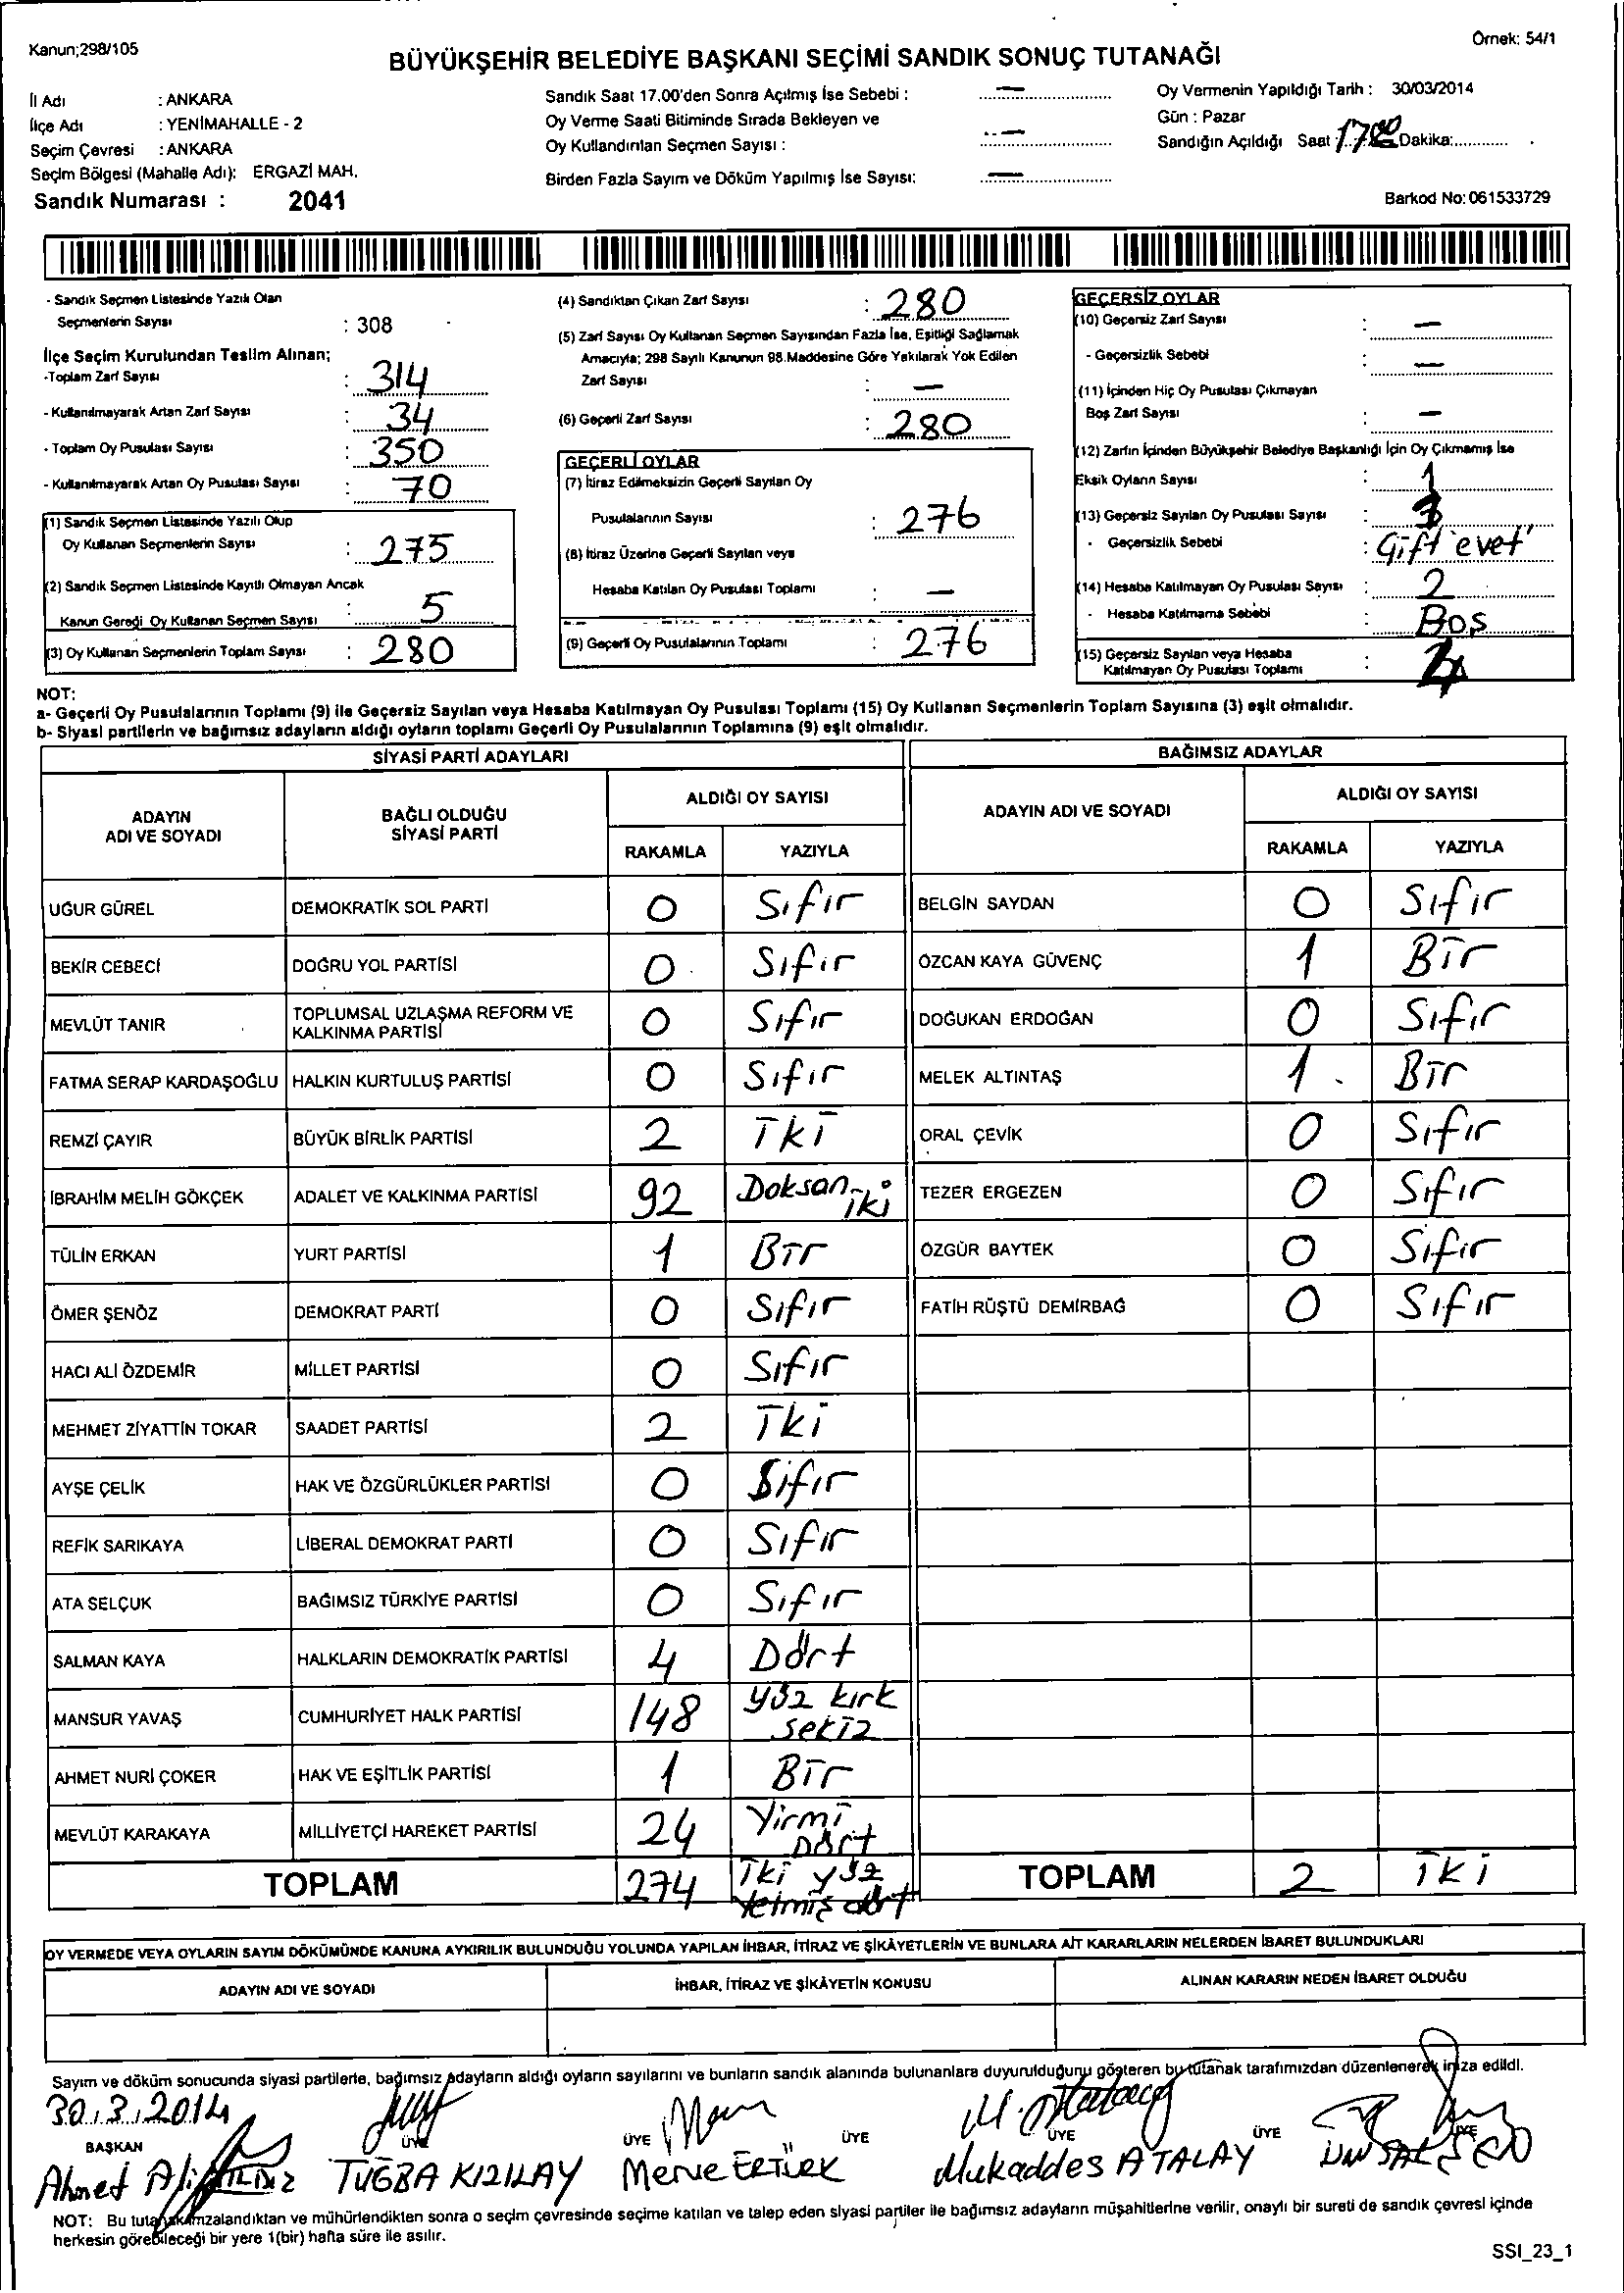 Kanun;298/105
Örnek: 54/1
BÜYÜKŞEHİR BELEDİYE BAŞKANI SEÇİMİ SANDIK SONUÇ TUTANAĞI
İl Adı : ANKARA
İlçe Adı : YENİMAHALLE - 2
Seçim Çevresi : ANKARA
Seçim Bölgesi (Mahalle Adı): ERGAZİ MAH.
Sandık Numarası : 2041
Sandık Saat 17.00'den Sonra Açılmış İse Sebebi : —
Oy Verme Saati Bitiminde Sırada Bekleyen ve
Oy Kullandırılan Seçmen Sayısı : —
Birden Fazla Sayım ve Döküm Yapılmış İse Sayısı: —
Oy Vermenin Yapıldığı Tarih : 30/03/2014
Gün : Pazar
Sandığın Açıldığı Saat : Dakika:
Barkod No: 061533729
- Sandık Seçmen Listesinde Yazılı Olan
Seçmenlerin Sayısı : 308
İlçe Seçim Kurulundan Teslim Alınan;
-Toplam Zarf Sayısı : 314
- Kullanılmayarak Artan Zarf Sayısı : 34
- Toplam Oy Pusulası Sayısı : 350
- Kullanılmayarak Artan Oy Pusulası Sayısı : 70
(1) Sandık Seçmen Listesinde Yazılı Olup
Oy Kullanan Seçmenlerin Sayısı : 275
(2) Sandık Seçmen Listesinde Kayıtlı Olmayan Ancak
Kanun Gereği Oy Kullanan Seçmen Sayısı : 5
(3) Oy Kullanan Seçmenlerin Toplam Sayısı : 280
(4) Sandıktan Çıkan Zarf Sayısı : 280
(5) Zarf Sayısı Oy Kullanan Seçmen Sayısından Fazla İse, Eşitliği Sağlamak
Amacıyla; 298 Sayılı Kanunun 98.Maddesine Göre Yakılarak Yok Edilen
Zarf Sayısı : —
(6) Geçerli Zarf Sayısı : 280
GEÇERLİ OYLAR
(7) İtiraz Edilmeksizin Geçerli Sayılan Oy
Pusulalarının Sayısı : 276
(8) İtiraz Üzerine Geçerli Sayılan veya
Hesaba Katılan Oy Pusulası Toplamı : —
(9) Geçerli Oy Pusulalarının Toplamı : 276
GEÇERSİZ OYLAR
(10) Geçersiz Zarf Sayısı : —
- Geçersizlik Sebebi : —
(11) İçinden Hiç Oy Pusulası Çıkmayan
Boş Zarf Sayısı : —
(12) Zarfın İçinden Büyükşehir Belediye Başkanlığı İçin Oy Çıkmamış İse
Eksik Oyların Sayısı : 1
(13) Geçersiz Sayılan Oy Pusulası Sayısı :
- Geçersizlik Sebebi : Çift 'evet'
(14) Hesaba Katılmayan Oy Pusulası Sayısı : 2
- Hesaba Katılmama Sebebi : Boş
(15) Geçersiz Sayılan veya Hesaba
Katılmayan Oy Pusulası Toplamı : 4
NOT:
a- Geçerli Oy Pusulalarının Toplamı (9) ile Geçersiz Sayılan veya Hesaba Katılmayan Oy Pusulası Toplamı (15) Oy Kullanan Seçmenlerin Toplam Sayısına (3) eşit olmalıdır.
b- Siyasi partilerin ve bağımsız adayların aldığı oyların toplamı Geçerli Oy Pusulalarının Toplamına (9) eşit olmalıdır.
SİYASİ PARTİ ADAYLARI BAĞIMSIZ ADAYLAR
ADAYIN
ADI VE SOYADI
BAĞLI OLDUĞU
SİYASİ PARTİ
ALDIĞI OY SAYISI
RAKAMLA YAZIYLA
ADAYIN ADI VE SOYADI
ALDIĞI OY SAYISI
RAKAMLA YAZIYLA
UĞUR GÜREL DEMOKRATİK SOL PARTİ 0 Sıfır BELGİN SAYDAN 0 Sıfır
BEKİR CEBECİ DOĞRU YOL PARTİSİ 0 Sıfır ÖZCAN KAYA GÜVENÇ 1 Bir
MEVLÜT TANIR TOPLUMSAL UZLAŞMA REFORM VE
KALKINMA PARTİSİ 0 Sıfır DOĞUKAN ERDOĞAN 0 Sıfır
FATMA SERAP KARDAŞOĞLU HALKIN KURTULUŞ PARTİSİ 0 Sıfır MELEK ALTINTAŞ 1 Bir
REMZİ ÇAYIR BÜYÜK BİRLİK PARTİSİ 2 İki ORAL ÇEVİK 0 Sıfır
İBRAHİM MELİH GÖKÇEK ADALET VE KALKINMA PARTİSİ 92 Doksan iki TEZER ERGEZEN 0 Sıfır
TÜLİN ERKAN YURT PARTİSİ 1 Bir ÖZGÜR BAYTEK 0 Sıfır
ÖMER ŞENÖZ DEMOKRAT PARTİ 0 Sıfır FATİH RÜŞTÜ DEMİRBAĞ 0 Sıfır
HACI ALİ ÖZDEMİR MİLLET PARTİSİ 0 Sıfır
MEHMET ZİYATTİN TOKAR SAADET PARTİSİ 2 İki
AYŞE ÇELİK HAK VE ÖZGÜRLÜKLER PARTİSİ 0 Sıfır
REFİK SARIKAYA LİBERAL DEMOKRAT PARTİ 0 Sıfır
ATA SELÇUK BAĞIMSIZ TÜRKİYE PARTİSİ 0 Sıfır
SALMAN KAYA HALKLARIN DEMOKRATİK PARTİSİ 4 Dört
MANSUR YAVAŞ CUMHURİYET HALK PARTİSİ 148 yüz kırk
sekiz
AHMET NURİ ÇOKER HAK VE EŞİTLİK PARTİSİ 1 Bir
MEVLÜT KARAKAYA MİLLİYETÇİ HAREKET PARTİSİ 24 Yirmi
Dört
TOPLAM 274 İki yüz
yetmiş dört TOPLAM 2 iki
OY VERMEDE VEYA OYLARIN SAYIM DÖKÜMÜNDE KANUNA AYKIRILIK BULUNDUĞU YOLUNDA YAPILAN İHBAR, İTİRAZ VE ŞİKÂYETLERİN VE BUNLARA AİT KARARLARIN NELERDEN İBARET BULUNDUKLARI
ADAYIN ADI VE SOYADI İHBAR, İTİRAZ VE ŞİKÂYETİN KONUSU ALINAN KARARIN NEDEN İBARET OLDUĞU
Sayım ve döküm sonucunda siyasi partilerle, bağımsız adayların aldığı oyların sayılarını ve bunların sandık alanında bulunanlara duyurulduğunu gösteren bu tutanak tarafımızdan düzenlenerek imza edildi.
30.3.2014
BAŞKAN ÜYE ÜYE ÜYE ÜYE ÜYE ÜYE
Ahmet Ali YILDIZ TUĞBA KIZILAY Merve ERTÜRK Mukaddes ATALAY ÜNSAL ŞEN
NOT: Bu tutanak imzalandıktan ve mühürlendikten sonra o seçim çevresinde seçime katılan ve talep eden siyasi partiler ile bağımsız adayların müşahitlerine verilir, onaylı bir sureti de sandık çevresi içinde
herkesin görebileceği bir yere 1(bir) hafta süre ile asılır.
SSI_23_1